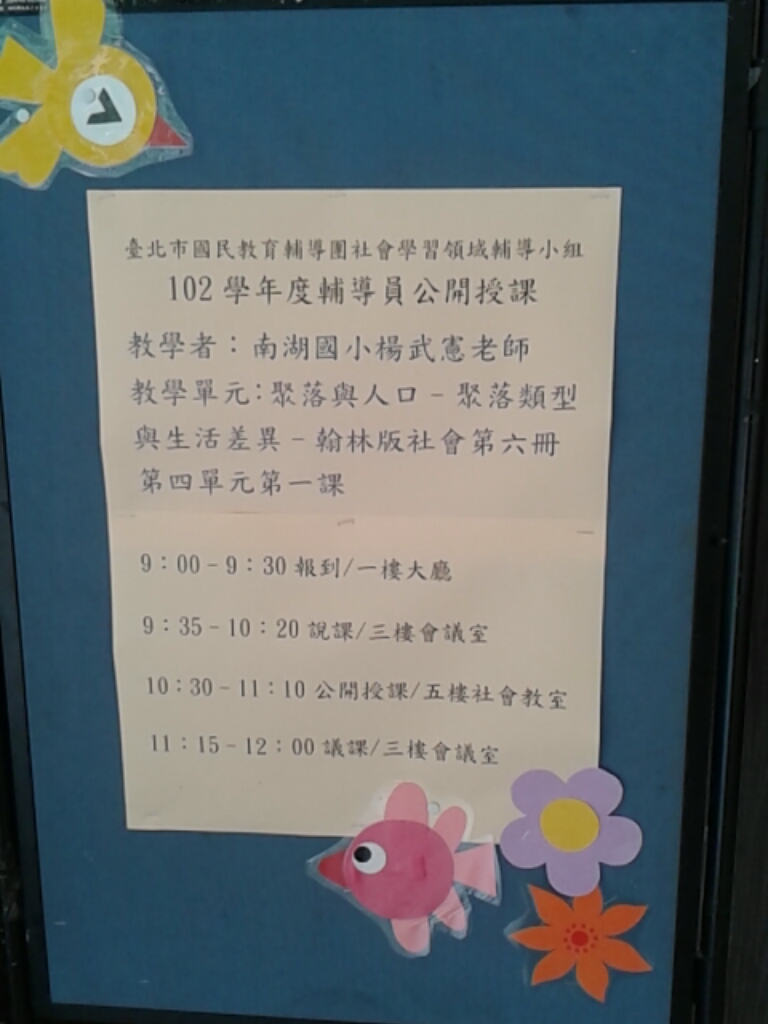 臺北市國民教育輔導團社會學習領域輔導小組
102 學年度輔導員公開授課
教學者：南湖國小楊武憲老師
教學單元：聚落與人口－聚落類型
與生活差異－翰林版社會第六冊
第四單元第一課
9：00－9：30 報到/一樓大廳
9：35－10：20 說課/三樓會議室
10：30－11：10 公開授課/五樓社會教室
11：15－12：00 議課/三樓會議室